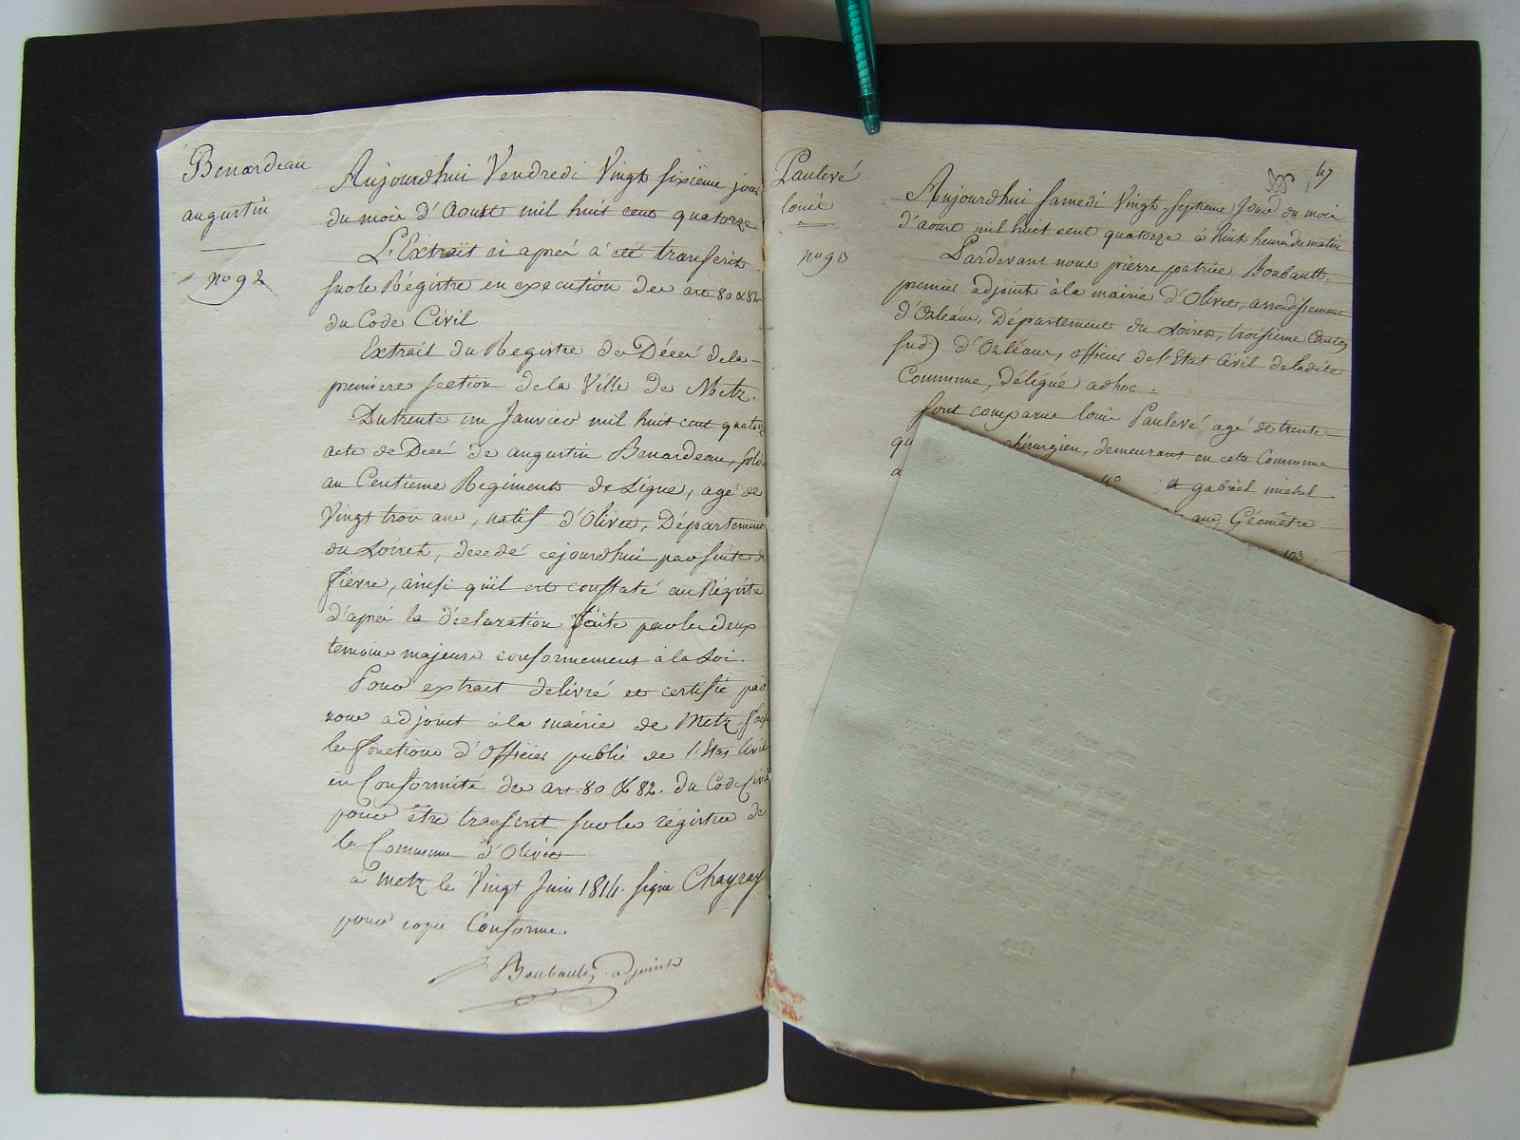 Benardeau
augustin
no 92
Aujourdhui Vendredi Vingt sixième jour
du mois d'Aoust mil huit cent quatorze
L'Extrait ci après à été transcrit
sur le Régistre en execution des art 80 & 82
du Code Civil
Extrait du Registre de Décés de la
premiere section de la Ville de Metz.
Du trente un Janvier mil huit cent quatorze
acte de Decé de augustin Benardeau, sold
au Centieme Regiment de Ligne, agé de
Vingt trois ans, natif d'Olivet, Département
du Loiret, decedé cejourdhui par suite de
fiévre, ainsi qu'il est constaté au Régistre
d'après la déclaration faite par les deux
temoins majeurs conformement à la Loi.
Pour extrait delivré et certifié par
nous adjoint à la mairie de Metz
les fonctions d'Officier public de l'Etat Civil
en Conformité des art. 80 & 82. du Code Civil
pour être transcrit sur les régistres de
la Commune d'Olivet
à Metz le Vingt Juin 1814. signé Chayray
pour copie Conforme.
Boubault, adjoint
Paulevé
louis
no 93
47
Aujourdhui samedi Vingt septieme Jour du mois
d'aout mil huit cent quatorze à huit heures du matin
Pardevant nous pierre patrice Boubault,
premier adjoint à la mairie d'Olivet, arrondissement
d'Orléans, Département du Loiret, troisieme Canton
Sud) d'Orléans, officier de l'Etat Civil de ladite
Commune, délégué adhoc.
sont comparus louis Paulevé agé de trente
qu chirurgien, demeurant en cette Commune
gabriel michel
ans, Géomêtre